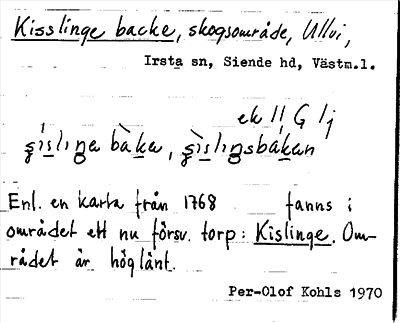 Kisslinge backe, skogsområde, Ullvi,
Irsta sn, Siende hd, Västm.l.
ek ll G lj
şìslıŋa bàka, şìslıŋsbakan
Enl. en karta från 1768 fanns i
området ett nu försv. torp: Kislinge. Om-
rådet är höglänt.
Per-Olof Kohls 1970